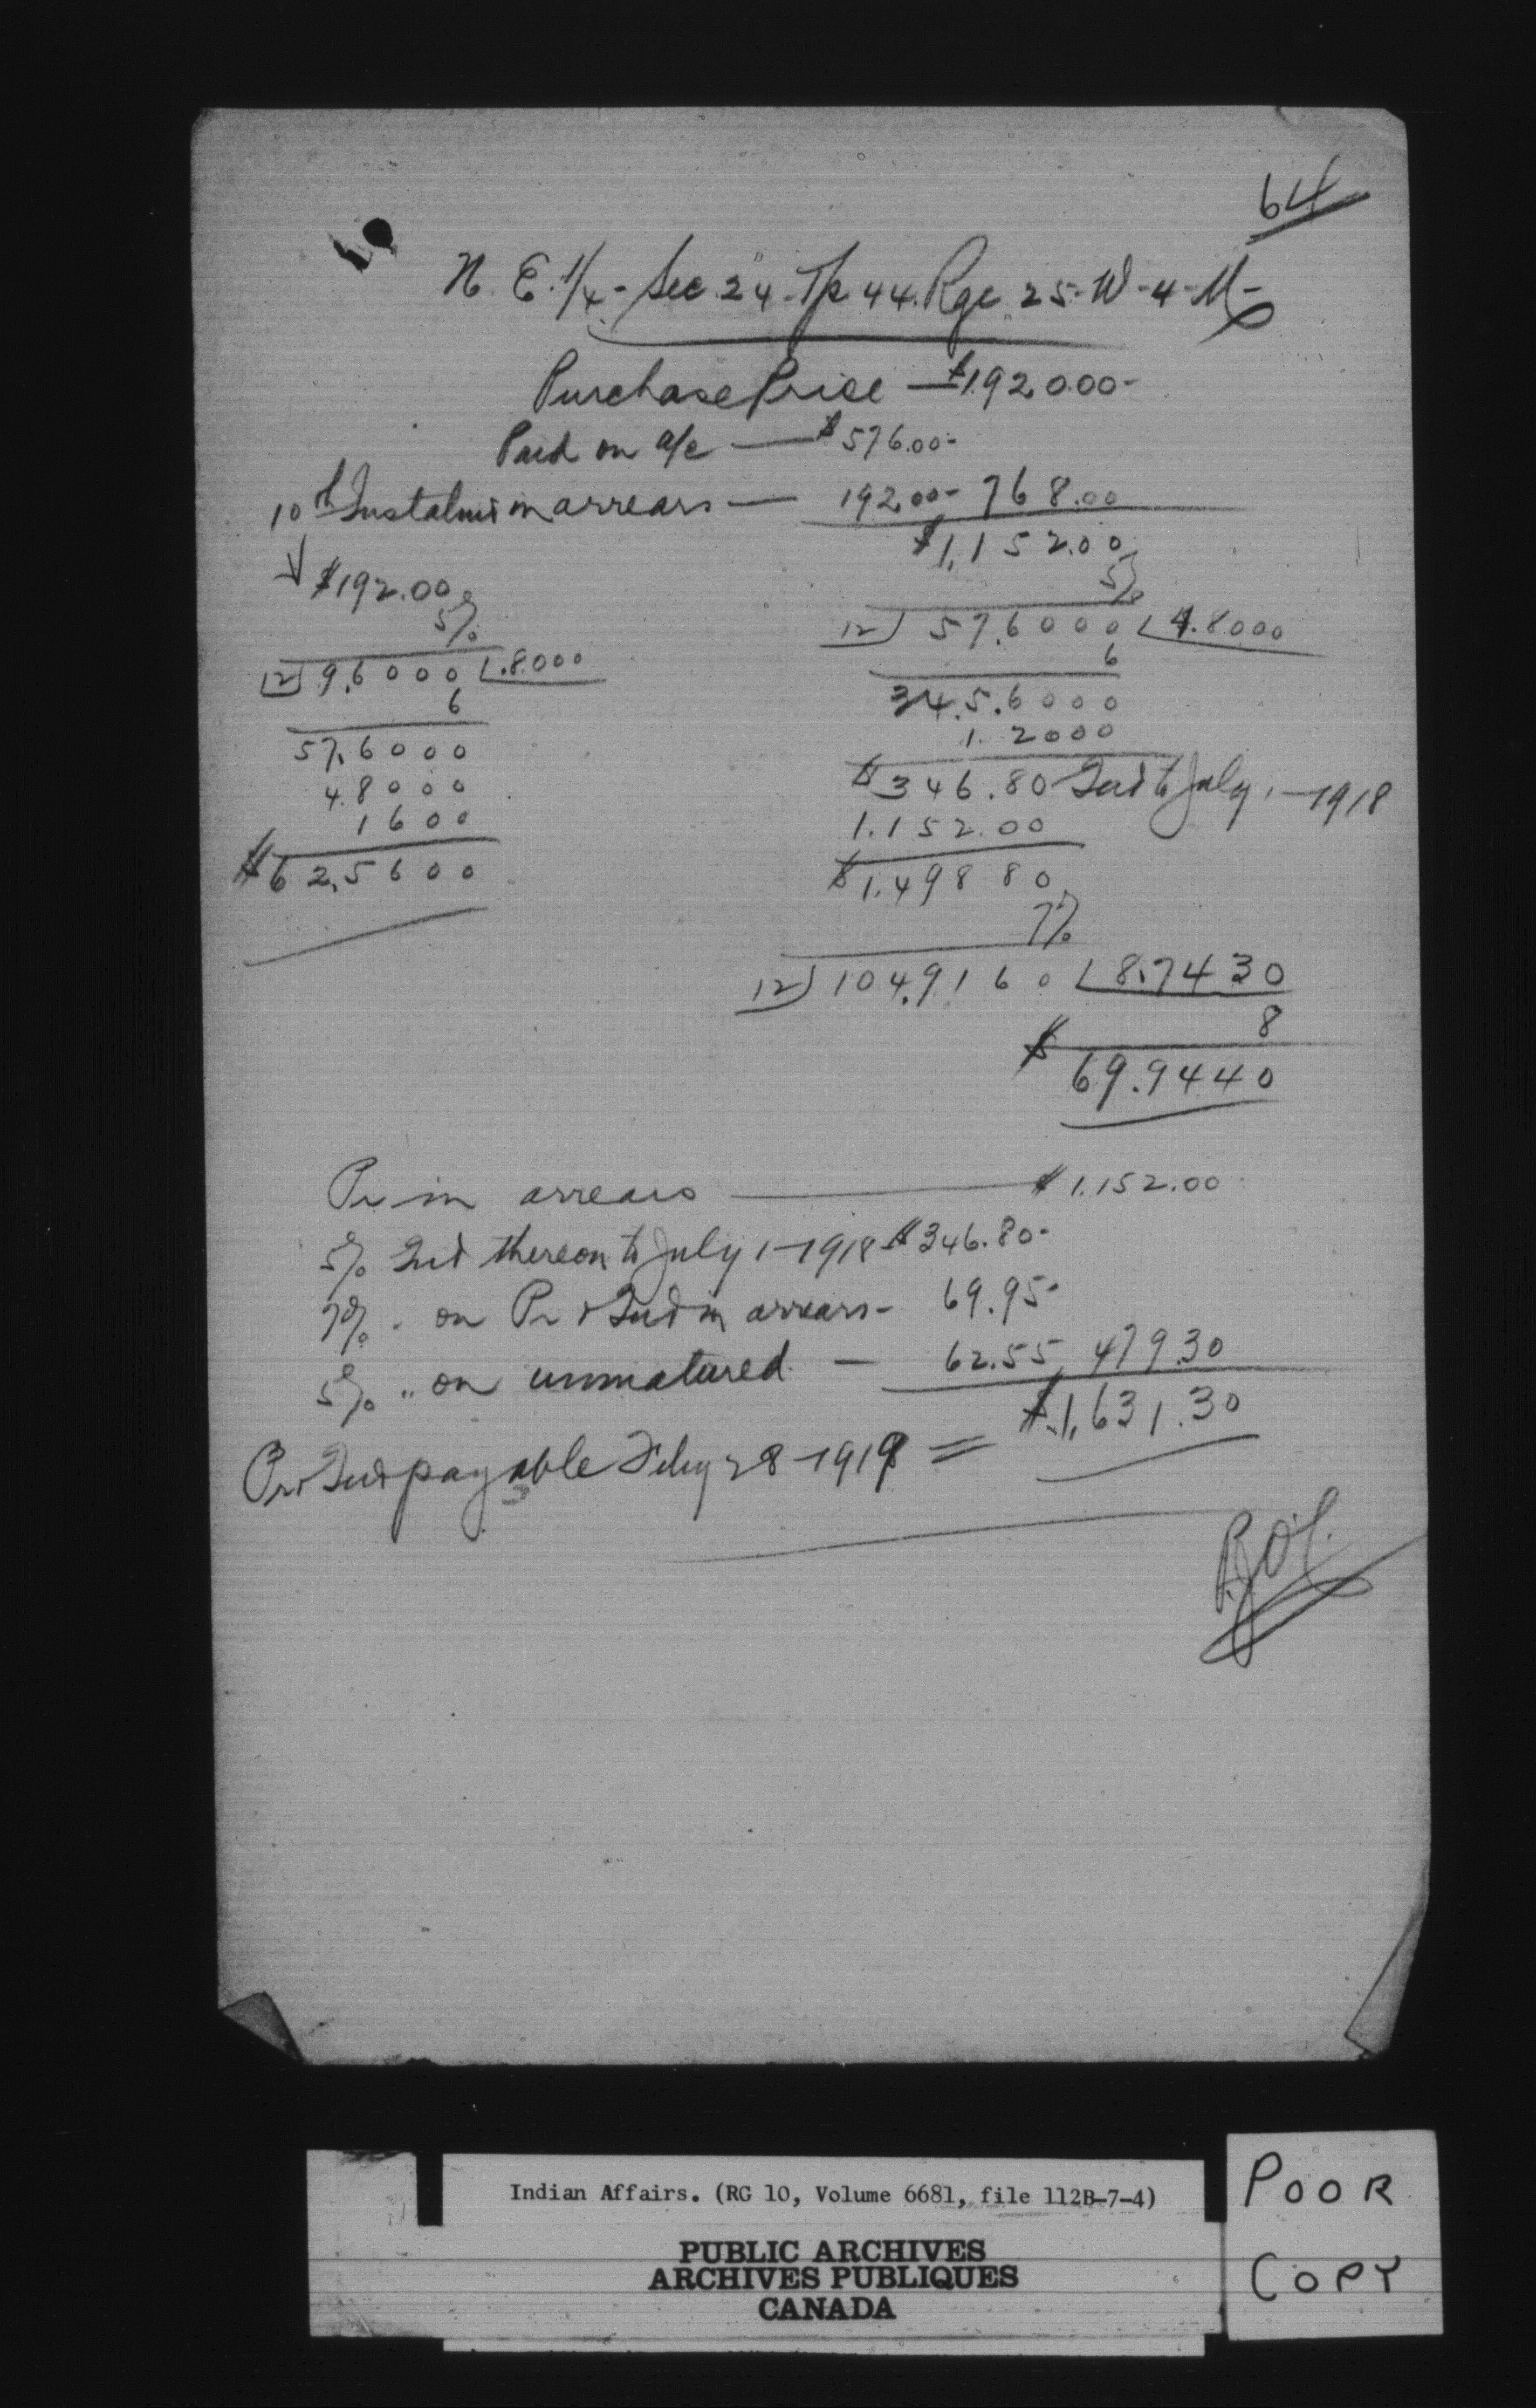 64
N.E. 1/4 - Sec. 24 - Tp. 44. Rge. 25 - W - 4 - M -
Purchase Price — $1920.00 -
Paid on a/c — $576.00 -
10th Instalmt in arrears — 192.00 - 768.00
$1,152.00
5%
12) 57.6000 | 4.8000
6
345.6000
1.2000
$346.80 Int to July 1 - 1918
1.152.00
$1.498 80
7%
12) 104.9160 | 8.7430
8
$ 69.9440
↓ $192.00
5%
12) 9.6000 | .8000
6
57.6000
4.8000
1600
$62.5600
Pr in arrears — $1.152.00
5% Int thereon to July 1 - 1918 $346.80 -
7% " on Pr & Int in arrears - 69.95 -
5% " on unmatured — 62.55 479.30
$1,631.30
Pr & Int payable Feby 28 - 1919 =
Indian Affairs. (RG 10, Volume 6681, file 112B-7-4)
PUBLIC ARCHIVES
ARCHIVES PUBLIQUES
CANADA
POOR
COPY